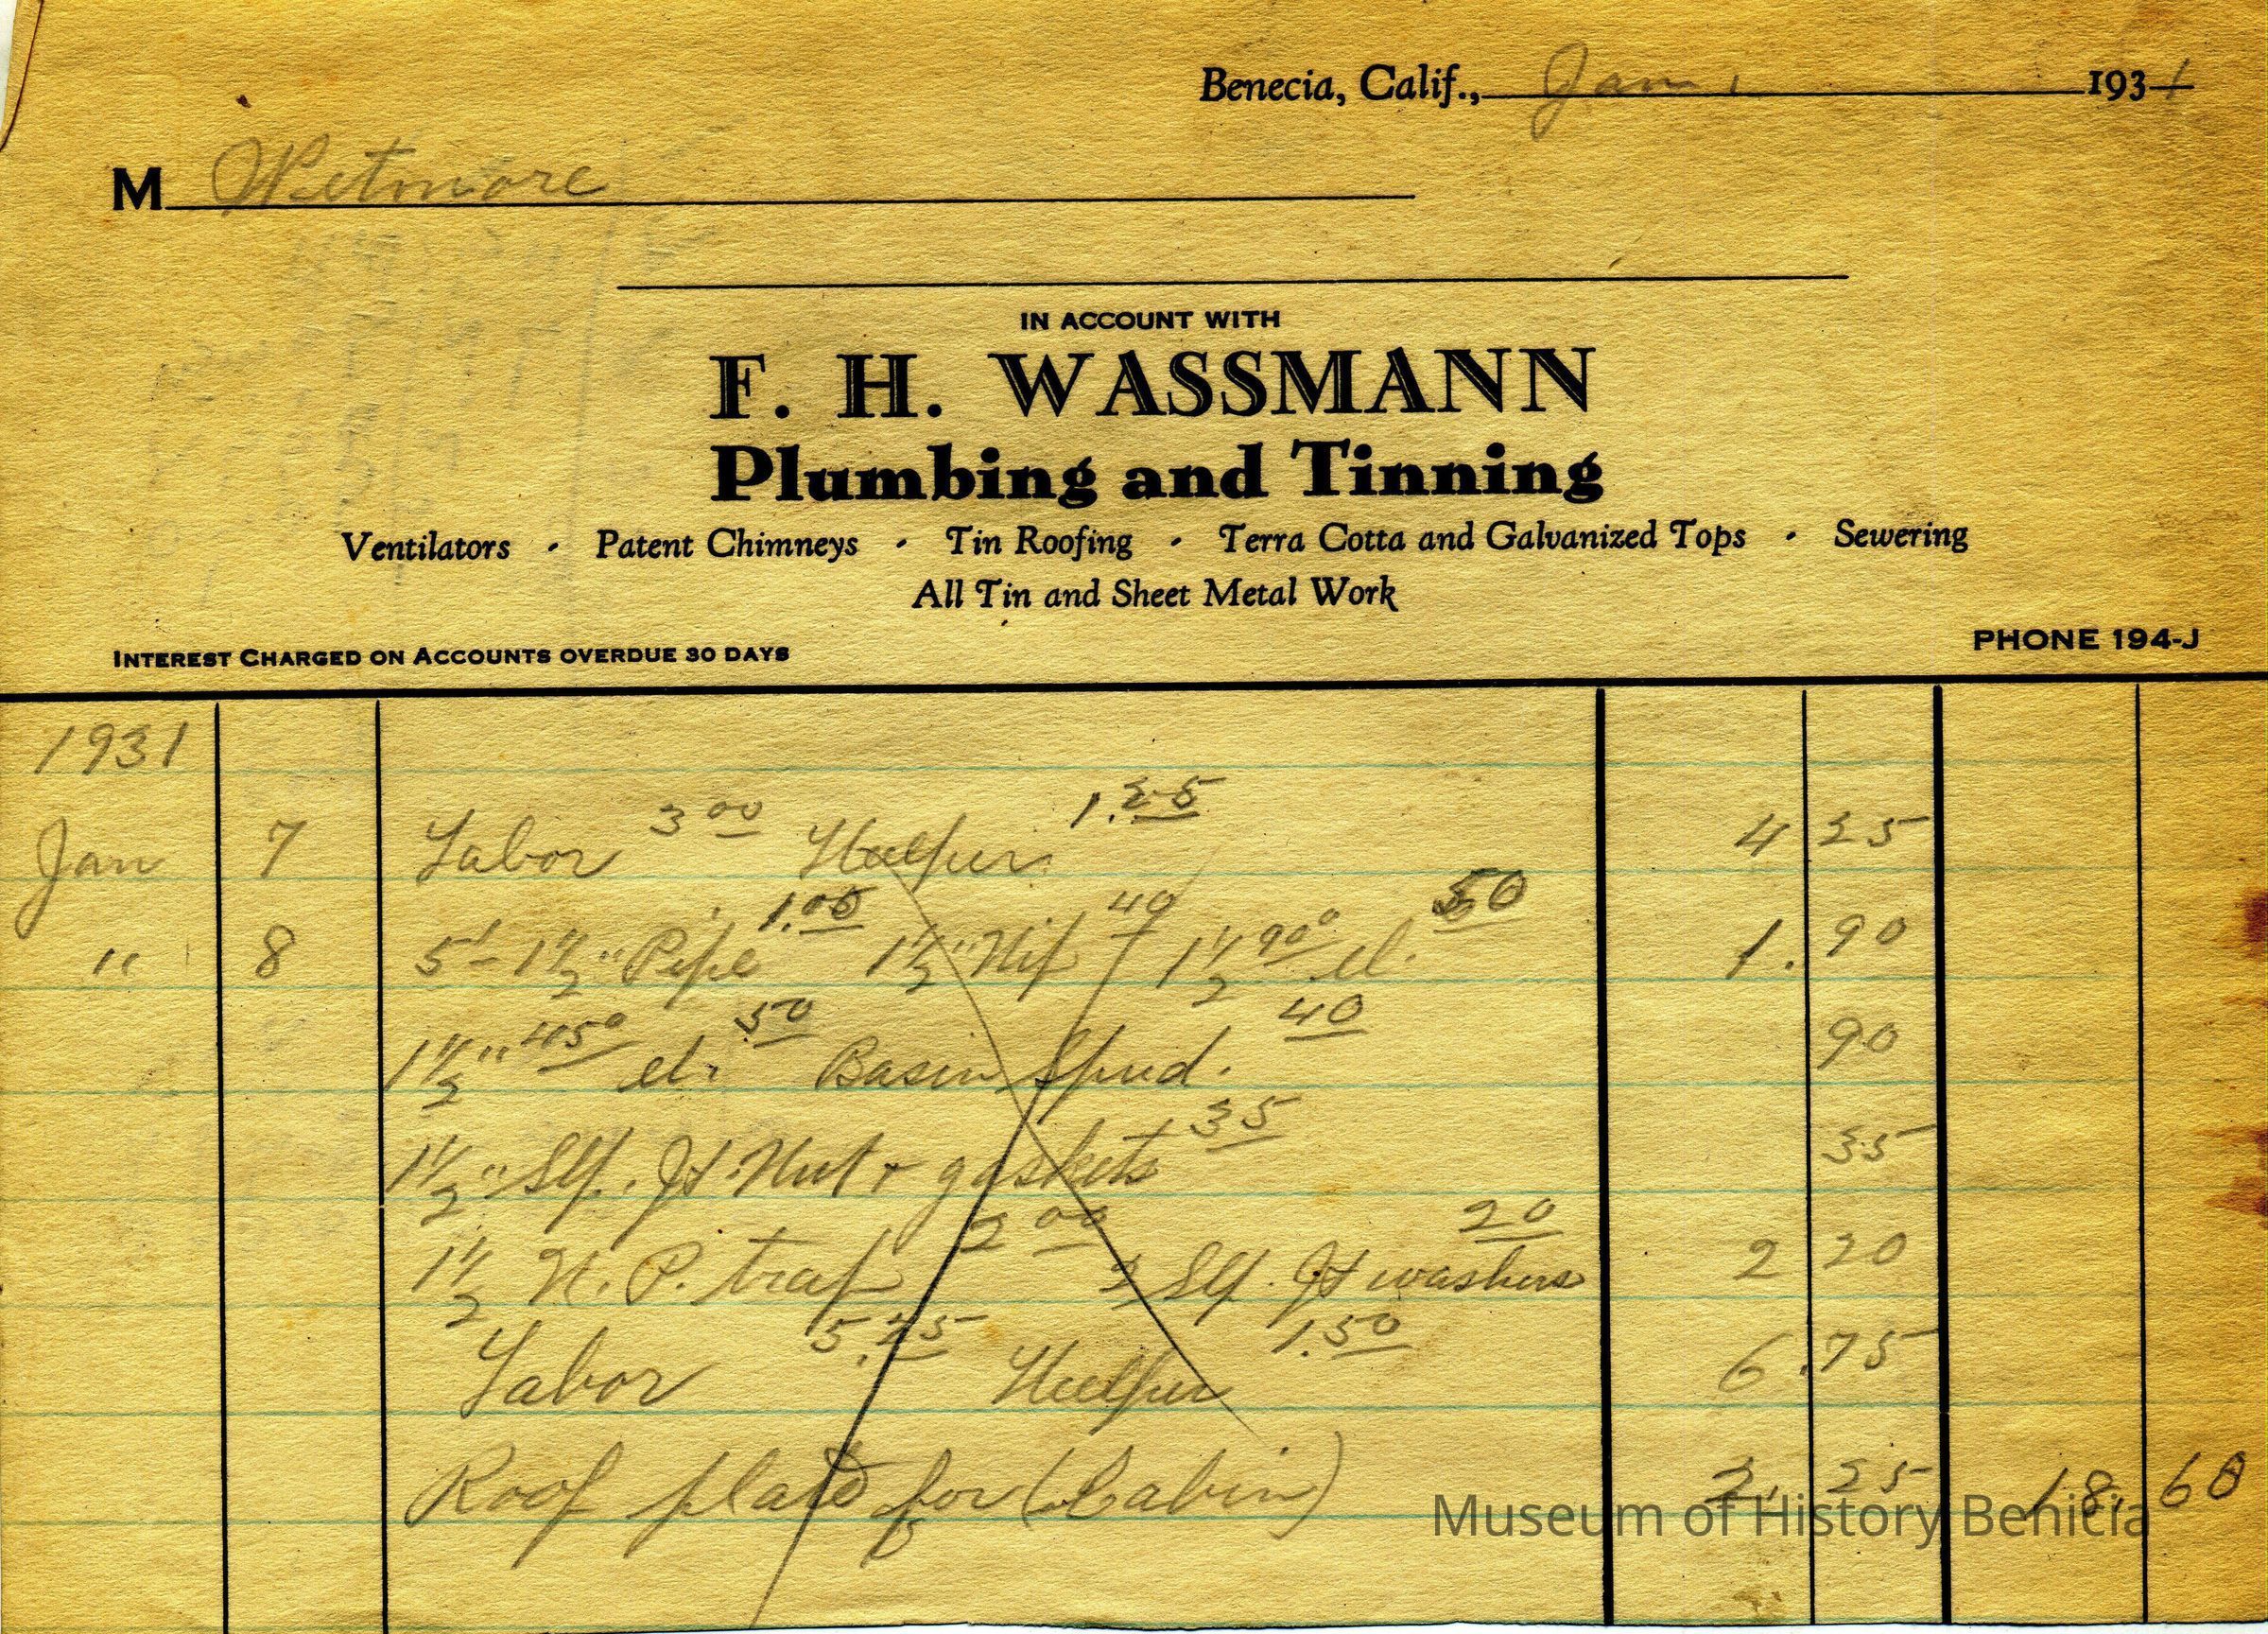 Benecia, Calif., Jan 1 1931
M Wetmore
IN ACCOUNT WITH
F. H. WASSMANN
Plumbing and Tinning
Ventilators · Patent Chimneys · Tin Roofing · Terra Cotta and Galvanized Tops · Sewering
All Tin and Sheet Metal Work
INTEREST CHARGED ON ACCOUNTS OVERDUE 30 DAYS PHONE 194-J
1931
Jan 7 Labor 3 00 Helper 1.25 4 25
" 8 5' - 1 1/2" Pipe 1.00 1 1/2" Nip 40 1 1/2 90° el. 50 1.90
1 1/2" 45° el. 50 Basin Spud. 40 90
1 1/2" Slp. Jt Nut + gaskets 35 35
1 1/2 N. P. trap 2 00 2 Slp. Jt washers 20 2 20
Labor 5.25 Helper 1.50 6.75
Roof for (Cabin) 2.25 18.60
Museum of History Benicia